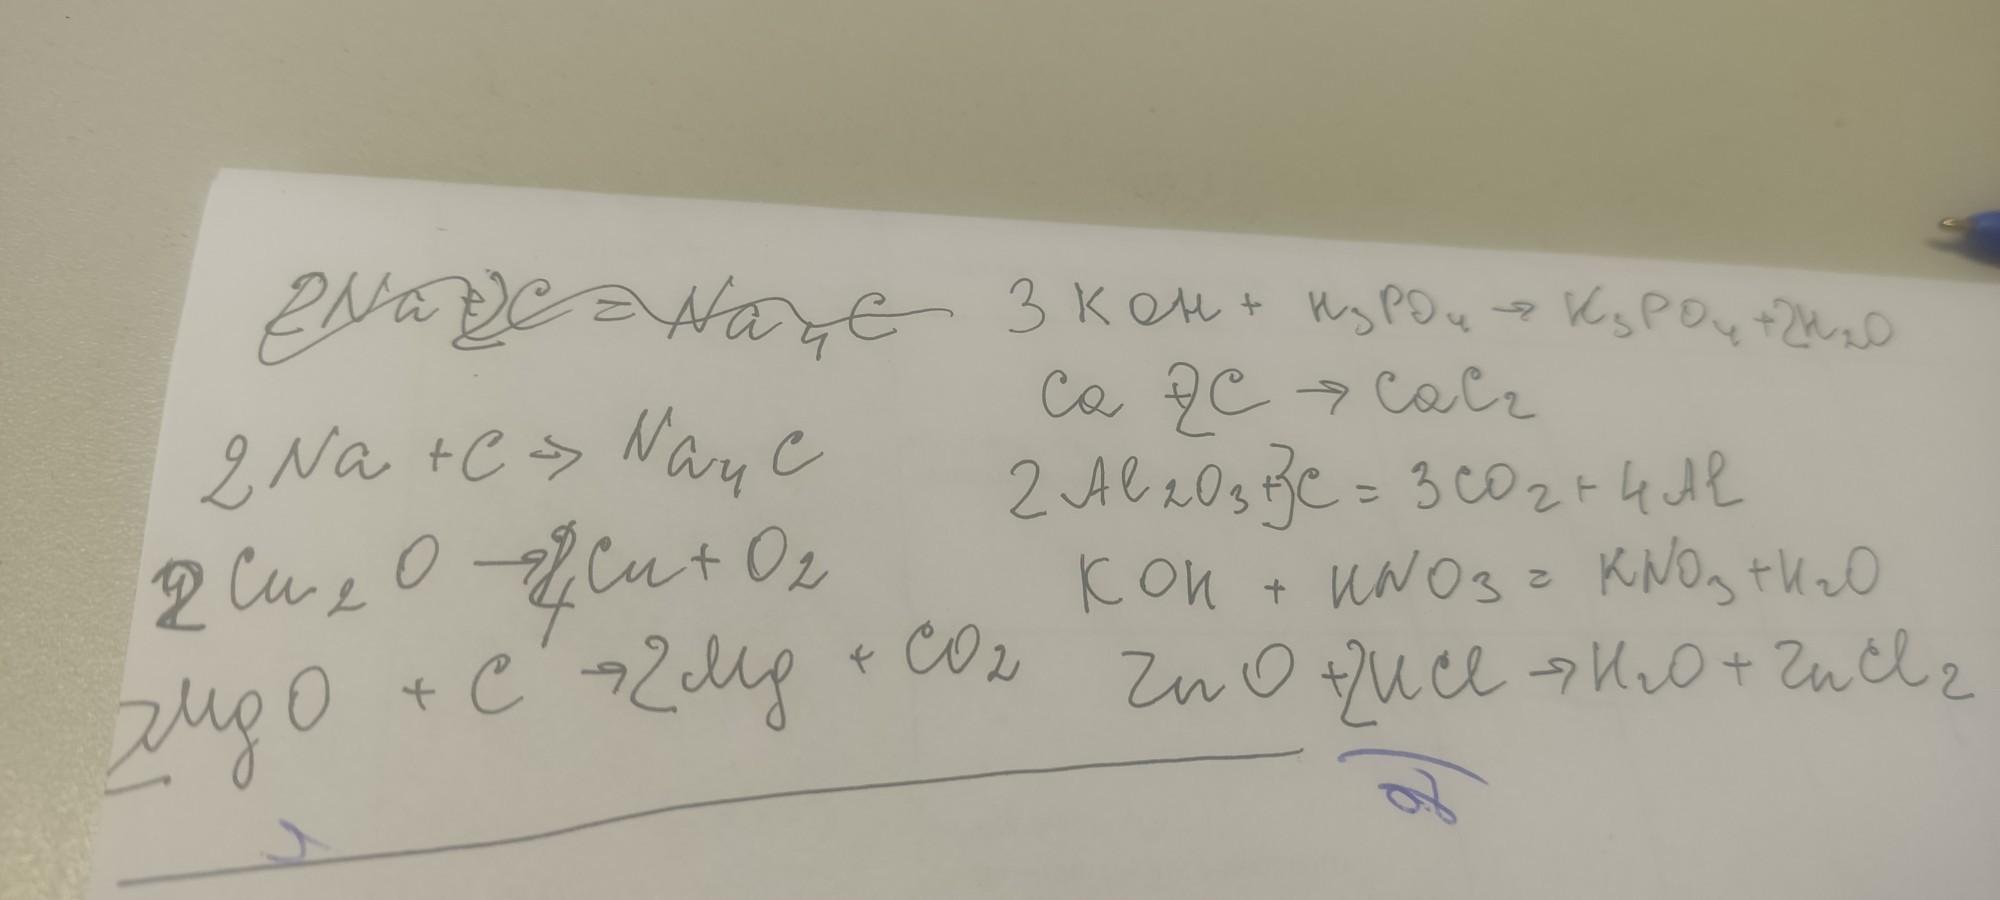 2Na+2C=Na₄C
2Na + C → Na₄C
2Cu₂O → 4Cu + O₂
2MgO + C → 2Mg + CO₂
3KOH + H₃PO₄ → K₃PO₄ + 2H₂O
Ca + 2C → CaC₂
2Al₂O₃ + 3C = 3CO₂ + 4Al
KOH + HNO₃ = KNO₃ + H₂O
ZnO + 2HCl → H₂O + ZnCl₂